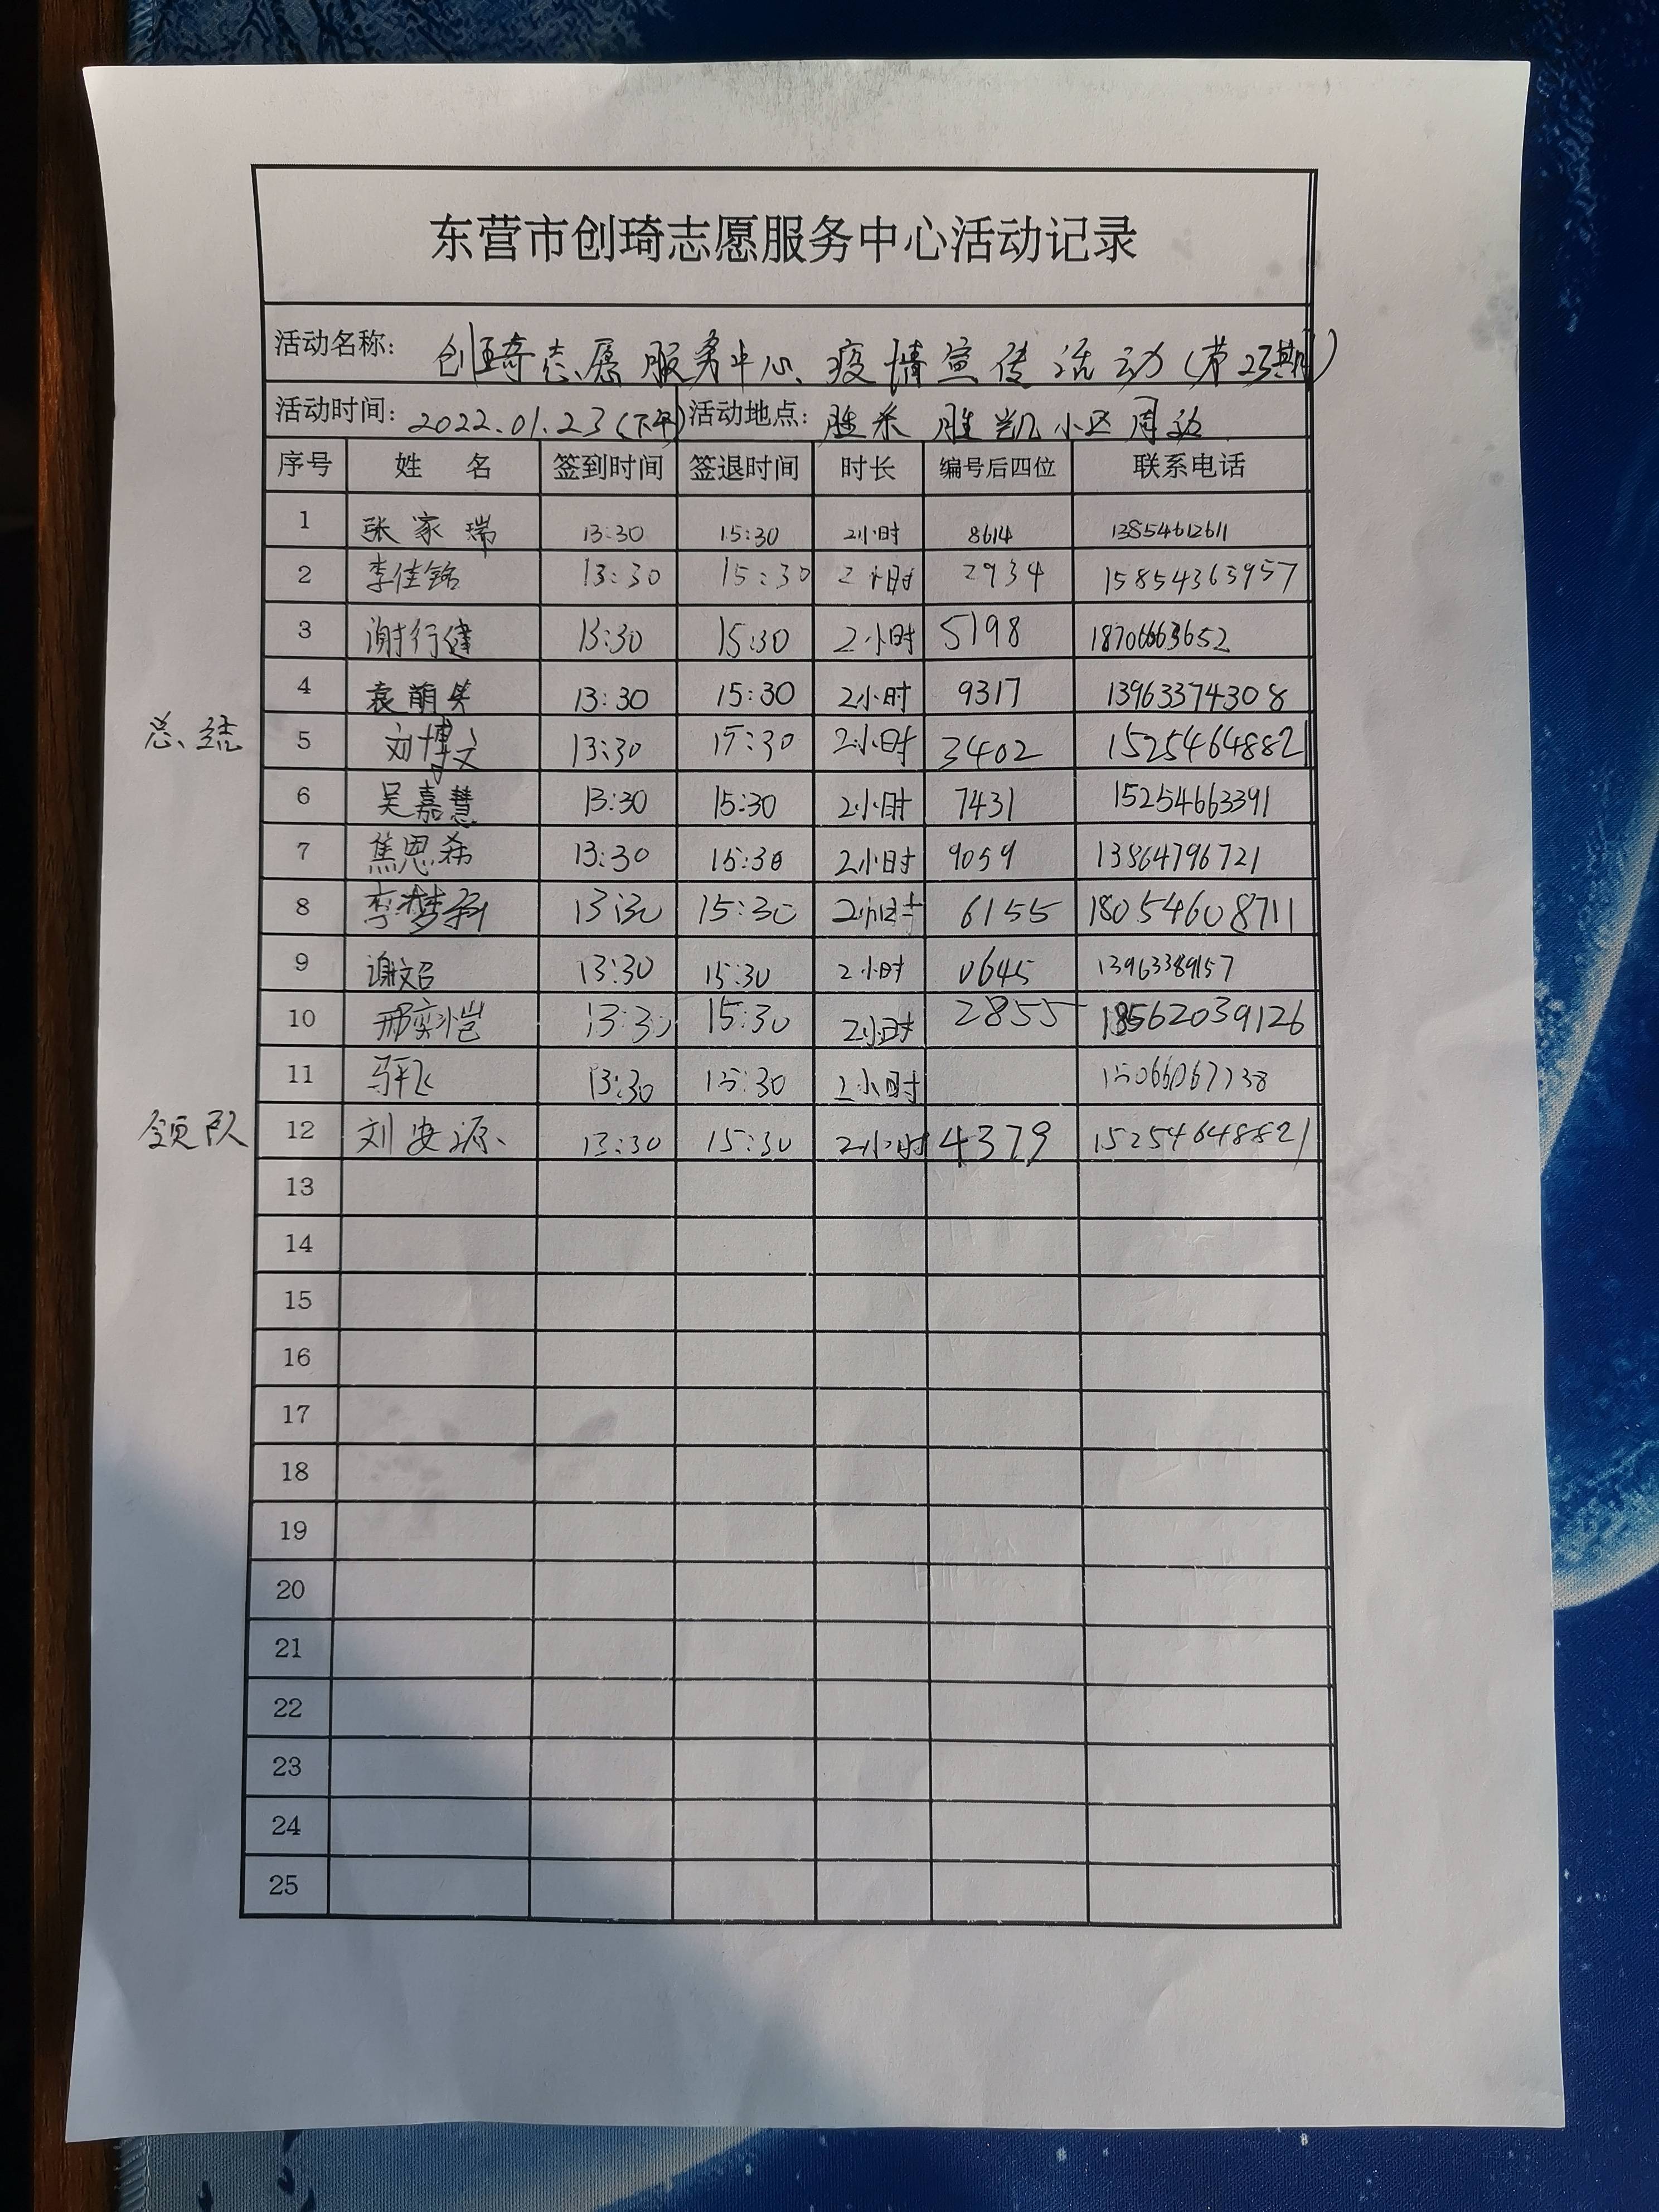 东营市创琦志愿服务中心活动记录
活动名称: 创琦志愿服务中心疫情宣传活动(第23期)
活动时间: 2022.01.23(下午) 活动地点: 胜采 胜凯小区周边
序号 姓 名 签到时间 签退时间 时长 编号后四位 联系电话
1 张家瑞 13:30 15:30 2小时 8614 13854612611
2 李佳铭 13:30 15:30 2小时 2934 15854363957
3 谢行健 13:30 15:30 2小时 5198 18706663652
4 袁萌昊 13:30 15:30 2小时 9317 13963374308
总结 5 刘博文 13:30 15:30 2小时 3402 15254648821
6 吴嘉慧 13:30 15:30 2小时 7431 15254663391
7 焦思希 13:30 15:30 2小时 9059 13864796721
8 李梦 13:30 15:30 2小时 6155 18054608711
9 谢文召 13:30 15:30 2小时 0645 13963389157
10 邢奕恺 13:30 15:30 2小时 2855 18562039126
11 13:30 15:30 2小时
领队 12 刘安源 13:30 15:30 2小时 4379 15254648821
13
14
15
16
17
18
19
20
21
22
23
24
25